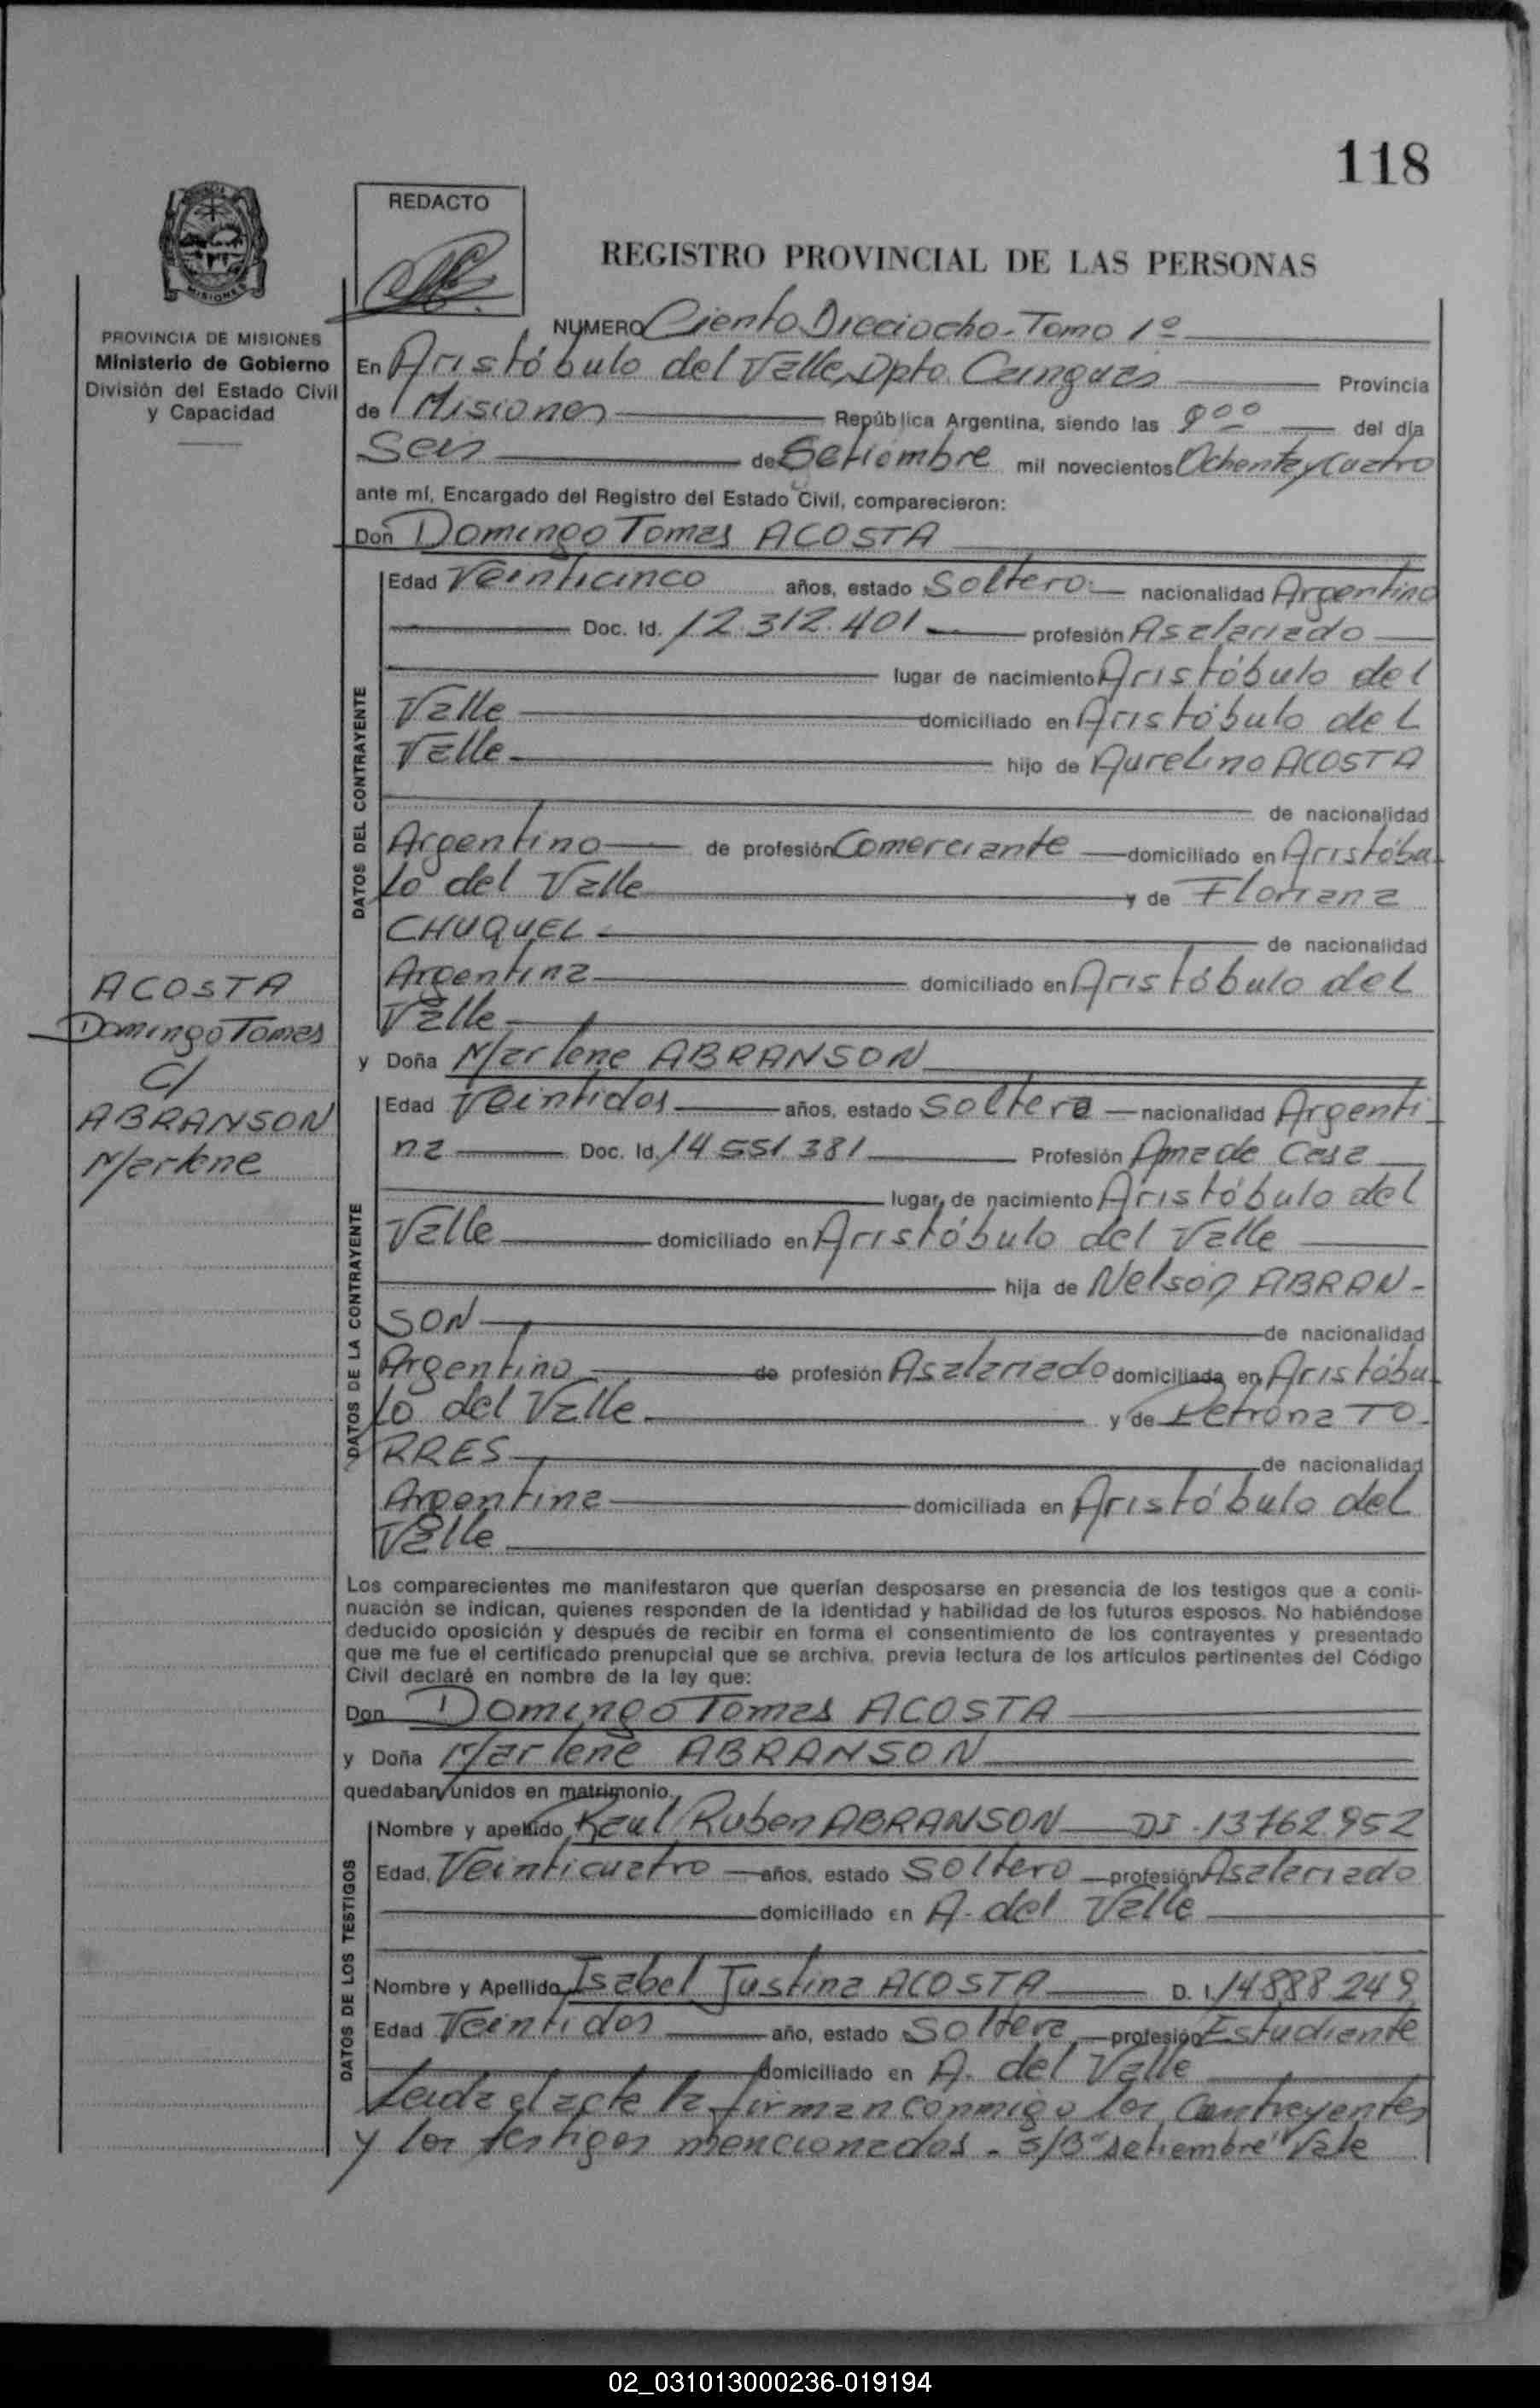 118
REDACTO
REGISTRO PROVINCIAL DE LAS PERSONAS
MISIONES
PROVINCIA DE MISIONES
Ministerio de Gobierno
División del Estado Civil
y Capacidad
NUMERO Ciento Dieciocho - Tomo 1º
En Aristóbulo del Valle, Dpto. Cainguas Provincia
de Misiones República Argentina, siendo las 9 00 del día
Seis de Setiembre mil novecientos Ochenta y Cuatro
ante mí, Encargado del Registro del Estado Civil, comparecieron:
Don Domingo Tomas ACOSTA
DATOS DEL CONTRAYENTE
Edad Veinticinco años, estado Soltero nacionalidad Argentino
Doc. Id. 12.312.401 profesión Asalariado
lugar de nacimiento Aristóbulo del
Valle domiciliado en Aristóbulo del
Valle hijo de Aurelino ACOSTA
de nacionalidad
Argentino de profesión Comerciante domiciliado en Aristóbu-
lo del Valle y de Floriana
CHUQUEL de nacionalidad
Argentina domiciliado en Aristóbulo del
Valle
ACOSTA
Domingo Tomas
C/
ABRANSON
Marlene
y Doña Marlene ABRANSON
DATOS DE LA CONTRAYENTE
Edad Veintidos años, estado Soltera nacionalidad Argenti-
na Doc. Id. 14 551 381 Profesión Ama de Casa
lugar de nacimiento Aristóbulo del
Valle domiciliado en Aristóbulo del Valle
hija de Nelson ABRAN-
SON de nacionalidad
Argentino de profesión Asalariado domiciliada en Aristóbu-
lo del Valle y de Petrona TO-
RRES de nacionalidad
Argentina domiciliada en Aristóbulo del
Valle
Los comparecientes me manifestaron que querían desposarse en presencia de los testigos que a conti-
nuación se indican, quienes responden de la identidad y habilidad de los futuros esposos. No habiéndose
deducido oposición y después de recibir en forma el consentimiento de los contrayentes y presentado
que me fue el certificado prenupcial que se archiva, previa lectura de los artículos pertinentes del Código
Civil declaré en nombre de la ley que:
Don Domingo Tomas ACOSTA
y Doña Marlene ABRANSON
quedaban unidos en matrimonio.
DATOS DE LOS TESTIGOS
Nombre y apellido Raul Ruben ABRANSON DI. 13762952
Edad, Veinticuatro años, estado Soltero profesión Asalariado
domiciliado en A. del Valle
Nombre y Apellido Isabel Justina ACOSTA D. I. 14888249
Edad Veintidos año, estado Soltera profesión Estudiante
domiciliado en A. del Valle
Leida el acta la firman conmigo los Contrayentes
y los testigos mencionados. S/B "setiembre" Vale
02_031013000236-019194